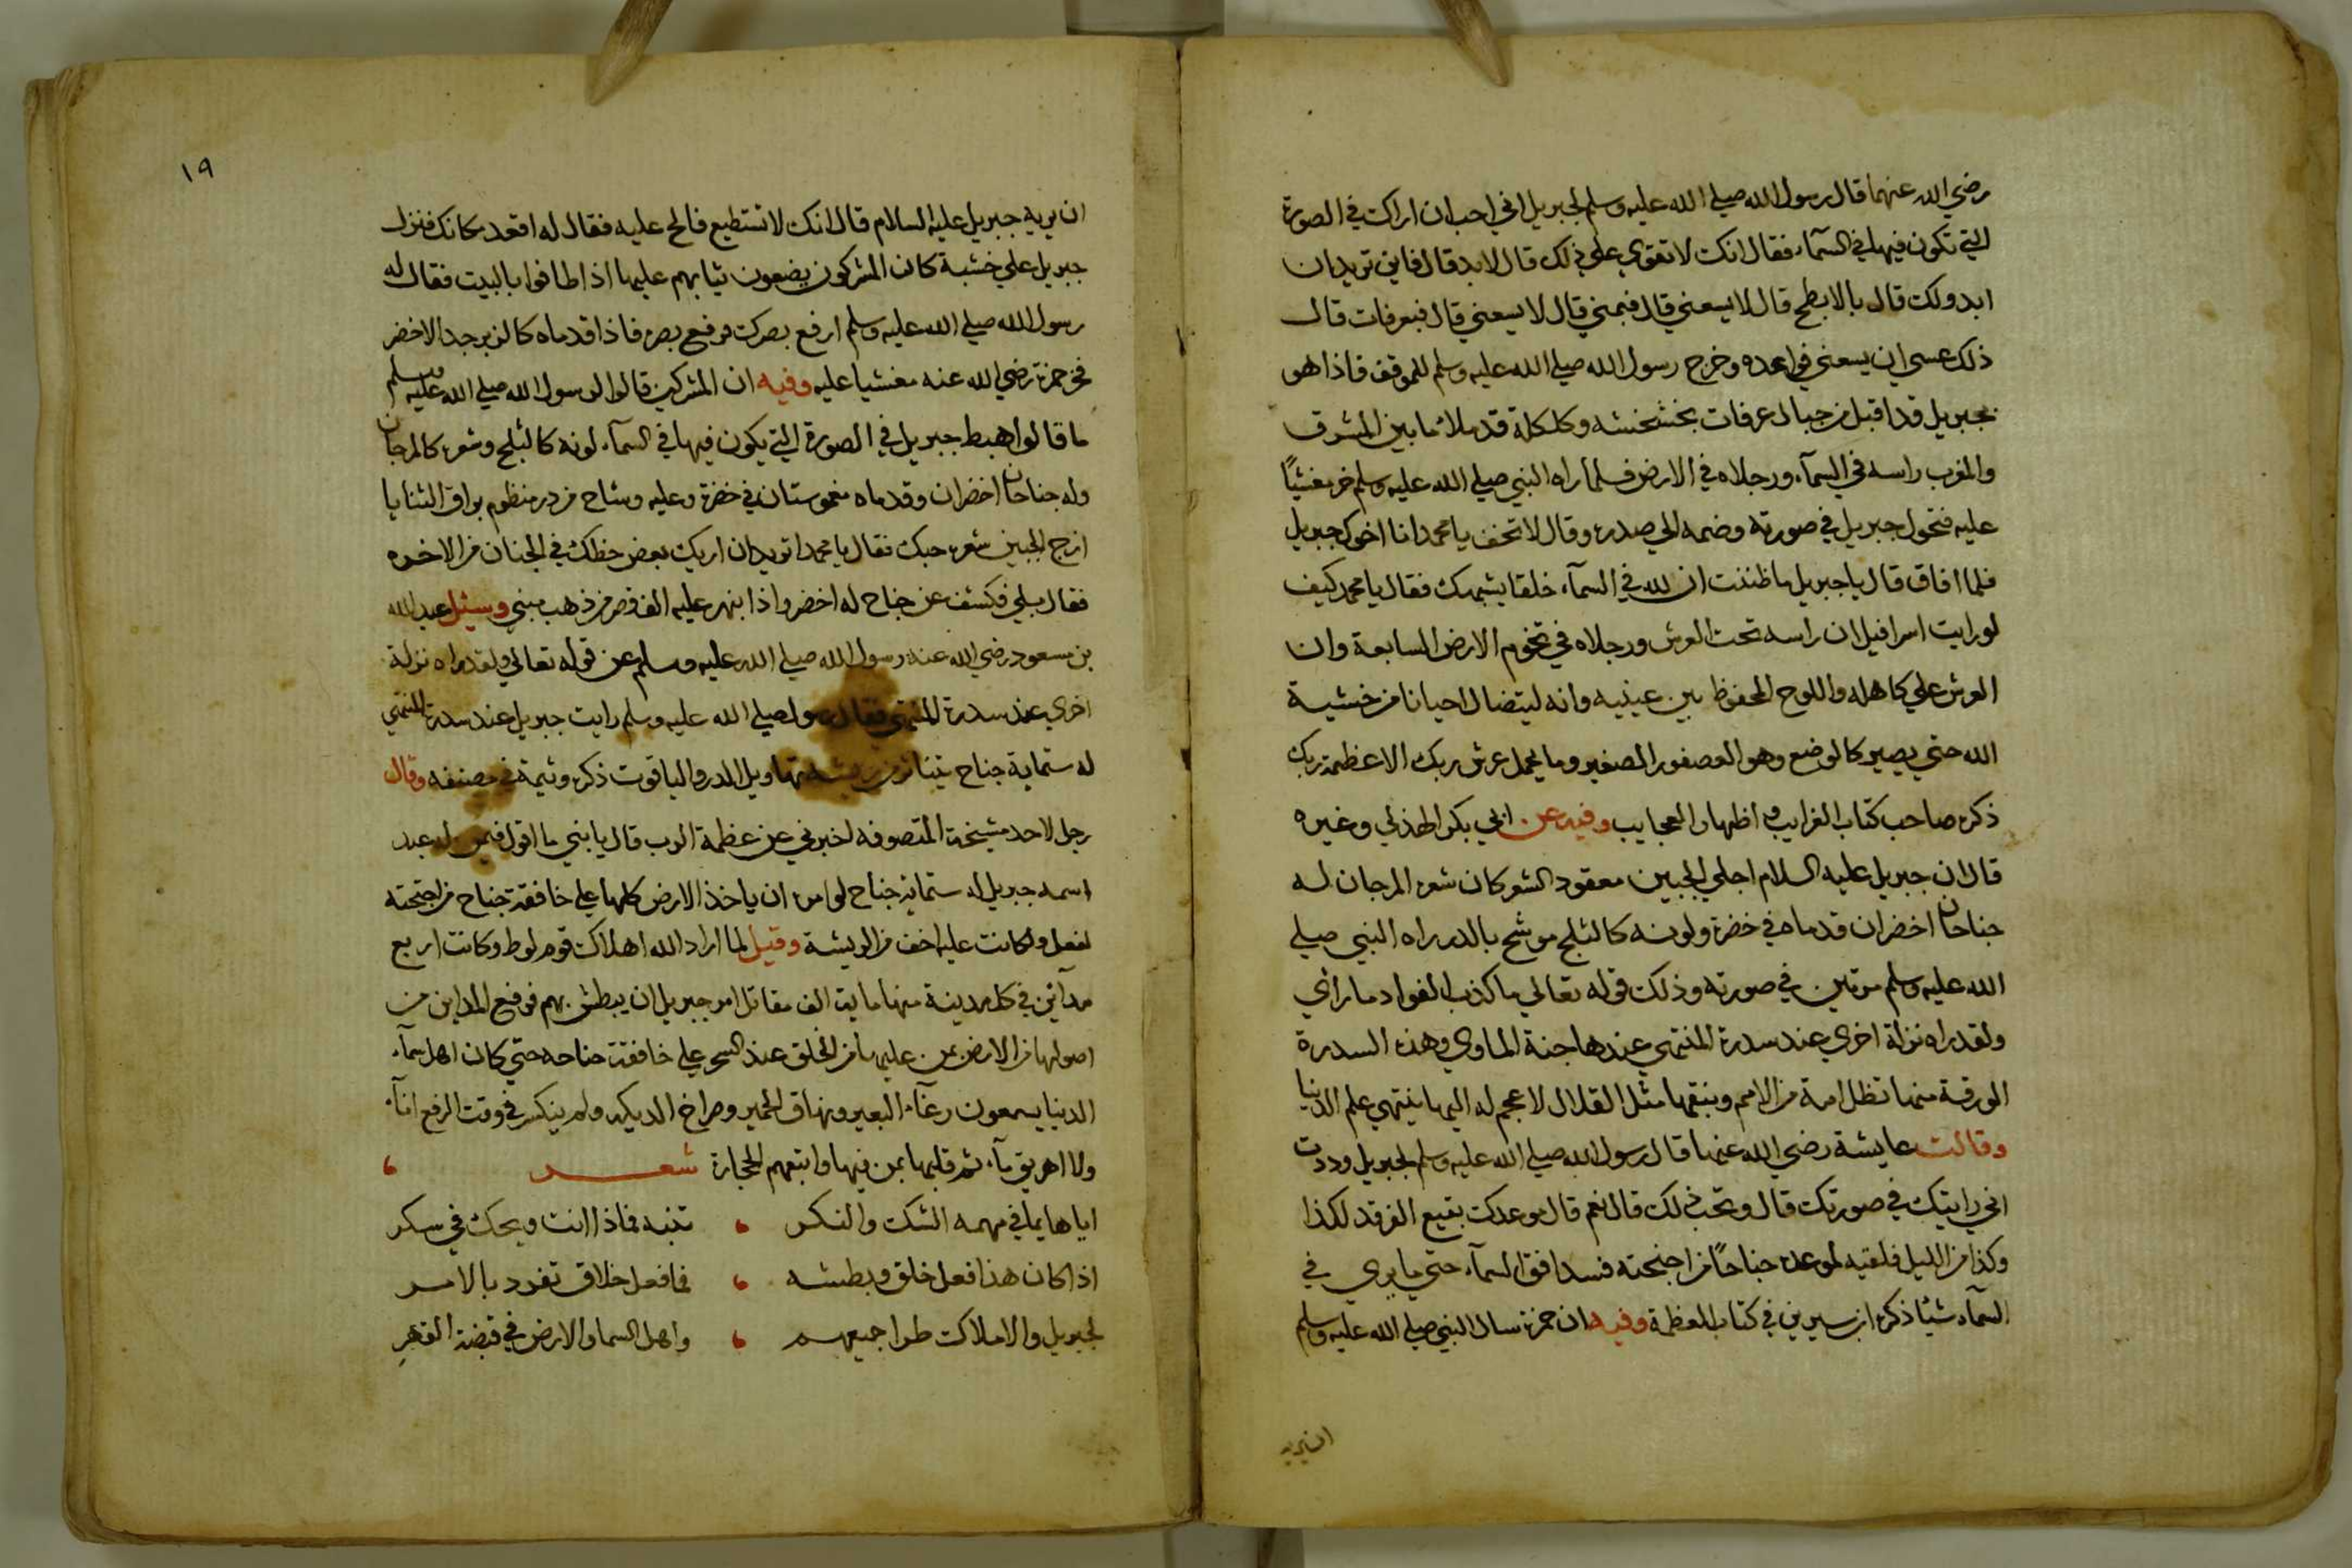 رضي الله عنهما قال رسول الله صلي الله عليه وسلم لجبريل اني احب ان اراك في الصورة
التي تكون فيها في السمآء فقال انك لا تقوي علي ذلك قال لا بد قال فاين تريد ان
ابدو لك قال بالابطح قال لا يسعني قال فبمني قال لا يسعني قال فبعرفات قال
ذلك عسي ان يسعني فواعده وخرج رسول الله صلي الله عليه وسلم للموقف فاذا هو
بجبريل قد اقبل من جبال عرفات بخشخشه وكلكلة قد ملأ ما بين المشرق
والمغرب راسه في السمآء ورجلاه في الارض فلما راه النبي صلي الله عليه وسلم خر مغشيًا
عليه فتحول جبريل في صورته وضمه الي صدره وقال لا تخف يا محمد انا اخوك جبريل
فلما افاق قال يا جبريل ما ظننت ان لله في السمآء خلقا يشبهك فقال يا محمد كيف
لو رايت اسرافيل ان راسه تحت العرش ورجلاه في تخوم الارض السابعة وان
العرش علي كاهله واللوح المحفوظ بين عينيه وانه ليتضال احيانا من خشية
الله حتي يصير كالوضع وهو العصفور الصغير وما يحمل عرش ربك الا عظمة ربك
ذكره صاحب كتاب الغرايب واظهار العجايب وفيه عن ابي بكر الهذلي وغيره
قال ان جبريل عليه السلام اجلي الجبين معقود الشعر كان شعره المرجان له
جناحان اخضران قدماه في خضرة ولونه كالثلج موشح بالدر راه النبي صلي
الله عليه وسلم مرتين في صورته وذلك قوله تعالي ما كذب الفواد ما راي
ولقد راه نزلة اخري عند سدرة المنتهي عندها جنة الماوي وهذه السدرة
الورقة منها تظل امة من الامم ونبقها مثل القلال لا عجم له اليها ينتهي علم الدنيا
وقالت عايشة رضي الله عنها قال رسول الله صلي الله عليه وسلم لجبريل وددت
اني رايتك في صورتك قال وتحب ذلك قال نعم قال موعدك بقيع الغرقد لكذا
وكذا من الليل فلقيه لموعده جناحًا من اجنحته فسد افق السمآء حتي ما يري في
السمآء شيئا ذكره ابن سيرين في كتاب العظمة وفيه ان حمزة سال النبي صلي الله عليه وسلم
ان يريه
١٩
ان يريه جبريل عليه السلام قال انك لا تستطيع فالح عليه فقال له اقعد مكانك فنزل
جبريل علي خشبة كان المشركون يضعون ثيابهم عليها اذا طافوا بالبيت فقال له
رسول الله صلي الله عليه وسلم ارفع بصرك فرفع بصره فاذا قدماه كالزبرجد الاخضر
فخر حمزة رضي الله عنه مغشيا عليه وفيه ان المشركين قالوا لرسول الله صلي الله عليه وسلم
ما قالوا هبط جبريل في الصورة التي يكون فيها في السمآء لونه كالثلج وشعره كالمرجان
وله جناحان اخضران وقدماه مغموستان في خضرة وعليه وشاح من در منظوم براق الثنايا
ازج الجبين شعره حبك فقال يا محمد اتريد ان اريك بعض حظك في الجنان من الاخره
فقال بلي فكشف عن جناح له اخضر واذا بنهر عليه الف قصر من ذهب مبني وسئل عبد الله
بن مسعود رضي الله عنه رسول الله صلي الله عليه وسلم عن قوله تعالي ولقد راه نزلة
اخري عند سدرة المنتهي فقال رسول صلي الله عليه وسلم رايت جبريل عند سدرة المنتهي
له ستماية جناح يتناثر من ريشه تهاويل الدر والياقوت ذكره وثيمة في مصنفه وقال
رجل لاحد مشيخة المتصوفه اخبرني عن عظمة الرب قال يا بني ما اقول فيمن له عبد
اسمه جبريل له ستماية جناح لو امره ان ياخذ الارض كلها علي خافقة جناح من اجنحته
لفعل ولكانت عليه اخف من الريشة وقيل لما اراد الله اهلاك قوم لوط وكانت اربع
مدآين في كل مدينة منها ماية الف مقاتل امر جبريل ان يبطش بهم فرفع المداين من
اصولها من الارض بمن عليها من الخلق عند السحر علي خافقة جناحه حتي كان اهل سمآء
الدنيا يسمعون رغآء البعير ونهاق الحمير وصراخ الديكه ولم ينكسر في وقت الرفع انآء
ولا اهريق مآء ثم قلبها بمن فيها واتبعهم الحجارة شعر
ايا هايما في مهمه الشك والنكر تنبه فماذا انت ويحك في سكر
اذا كان هذا فعل خلق وبطشه فما فعل خلاق تفرد بالامر
لجبريل والاملاك طرا جميعهم واهل السما والارض في قبضة القهر